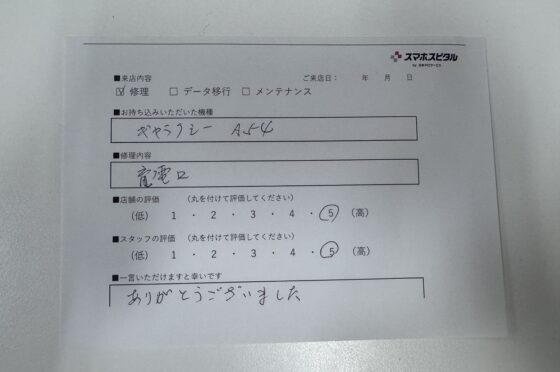 スマホスピタル
■来店内容 ご来店日： 年 月 日
☑ 修理 □ データ移行 □ メンテナンス
■お持ち込みいただいた機種
ギャラクシー A54
■修理内容
電口
■店舗の評価 （丸を付けて評価してください）
（低） 1 ・ 2 ・ 3 ・ 4 ・ 5 （高）
■スタッフの評価 （丸を付けて評価してください）
（低） 1 ・ 2 ・ 3 ・ 4 ・ 5 （高）
■一言いただけますと幸いです
ありがとうございました